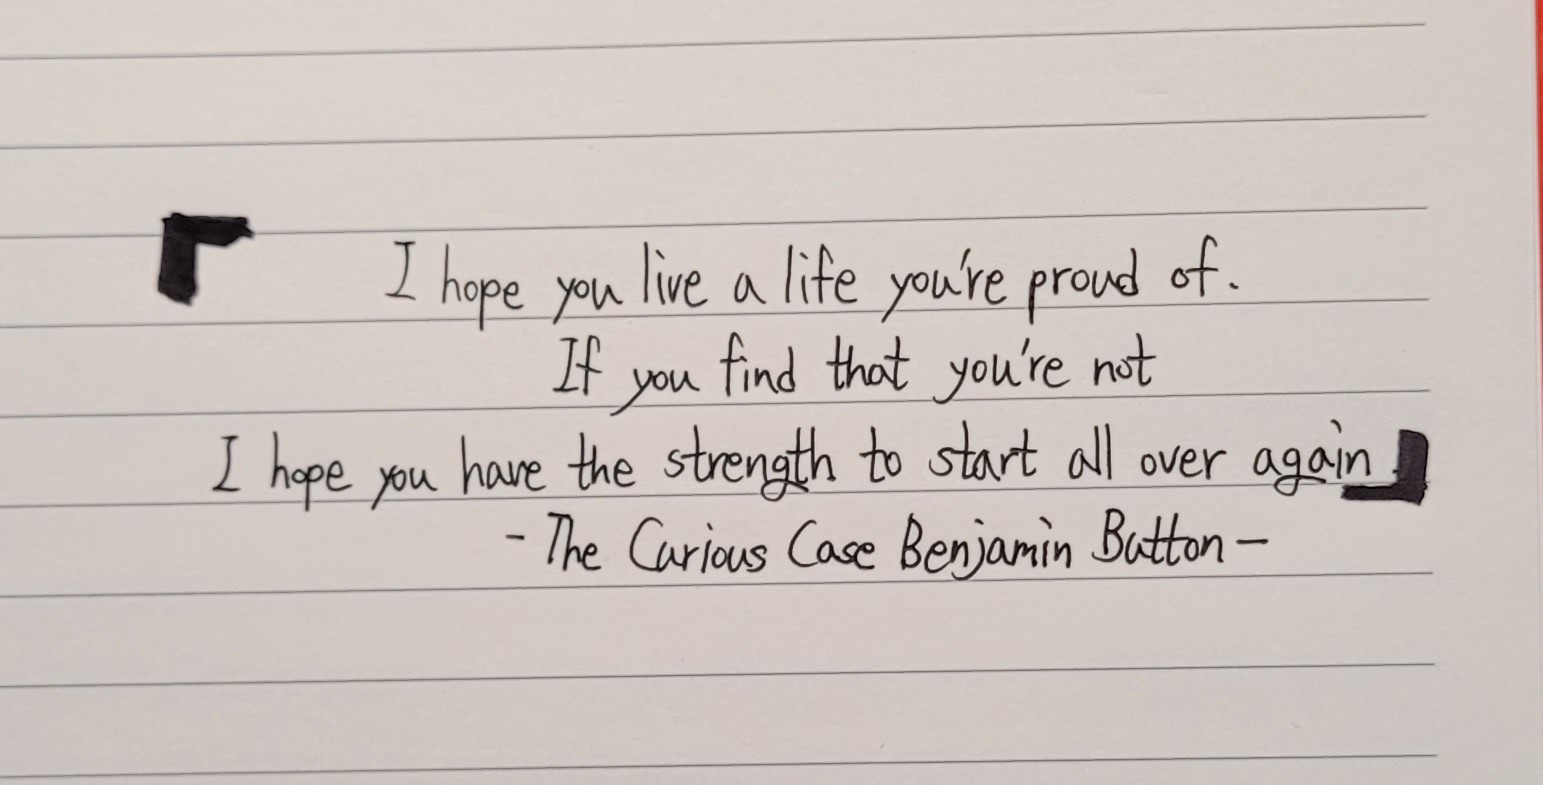 「I hope you live a life you're proud of.
If you find that you're not
I hope you have the strength to start all over again.」
- The Curious Case Benjamin Button -